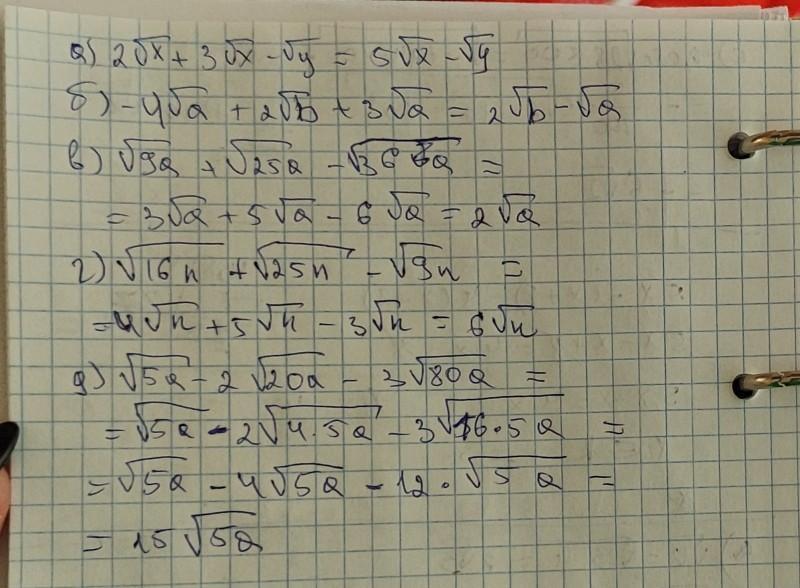 а) 2√x + 3√x - √y = 5√x - √y
б) -4√a + 2√b + 3√a = 2√b - √a
в) √9a + √25a - √36a =
= 3√a + 5√a - 6√a = 2√a
г) √16n + √25n - √9n =
= 4√n + 5√n - 3√n = 6√n
д) √5a - 2√20a - 3√80a =
= √5a - 2√4·5a - 3√16·5a =
= √5a - 4√5a - 12·√5a =
= 15√5a